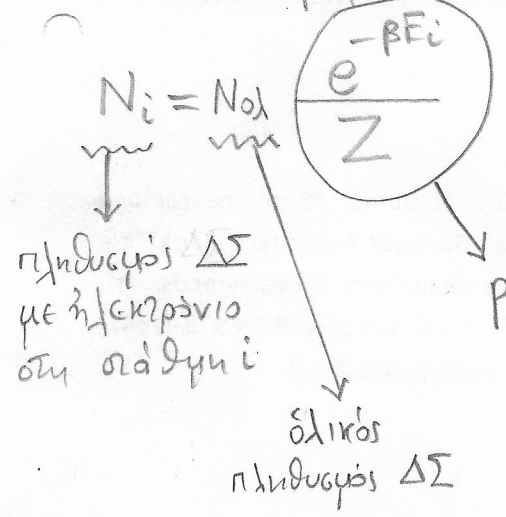 Nᵢ = Nολ e^{-βEᵢ} / Z
πληθυσμός ΔΣ
με ἠλεκτρόνιο
στη στάθμη i
P
ὁλικός
πληθυσμός ΔΣ